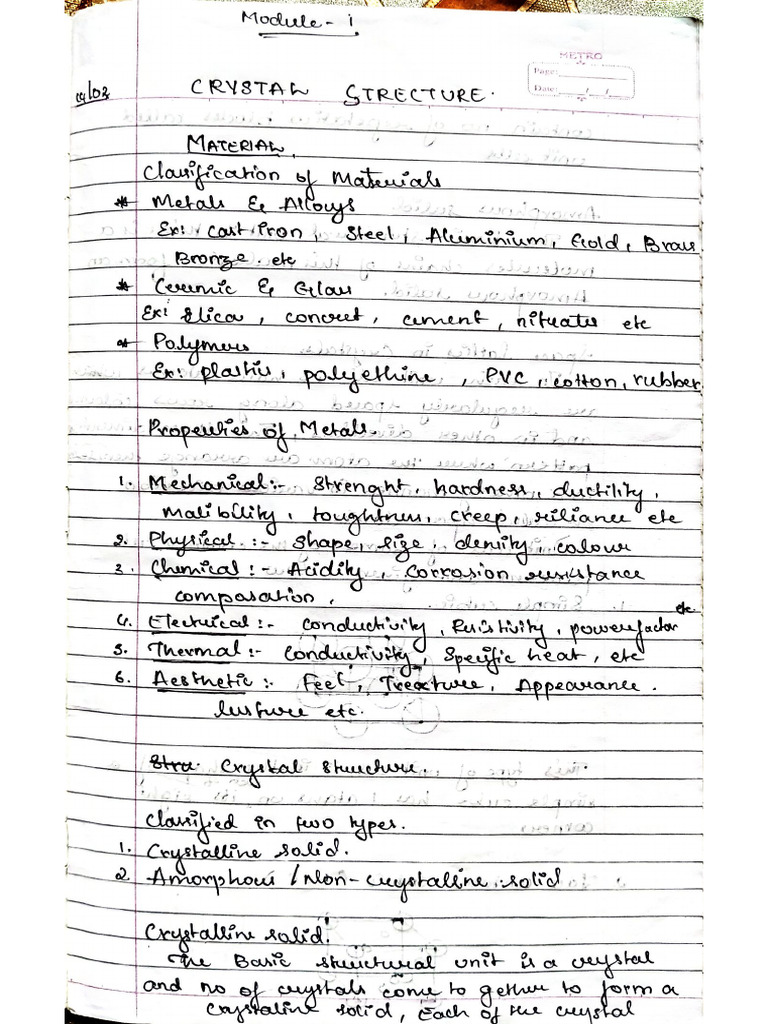 Module - 1
METRO
Page:
Date:
CRYSTAL STRECTURE.
MATERIAL
Classification of Materials
* Metals & Alloys
Ex: cast iron, Steel, Aluminium, Gold, Brass
Bronze etc
* Ceremic & Glass
Ex: Silica, concret, cement, nituates etc
* Polymers
Ex: plastis, polyethine, PVC, cotton, rubber.
Properties of Metals.
1. Mechanical:- Strenght, hardness, ductility,
malibility, toughtness, creep, riliance etc
2. Physical :- Shape, size, density, colour
3. Chemical :- Acidity, corrosion resistance
composation.
4. Electrical :- conductivity, Resistivity, powerfactor etc
5. Thermal :- conductivity, Specific heat, etc
6. Aesthetic :- Feel, Treacture, Appearance.
lusture etc.
Stru Crystal structure.
Classified in two types.
1. Crystalline solid.
2. Amorphous / Non-crystalline solid
Crystalline solid.
The Basic structural unit is a crystal
and no of crystals come to gether to form a
crystaline solid, Each of the crystal